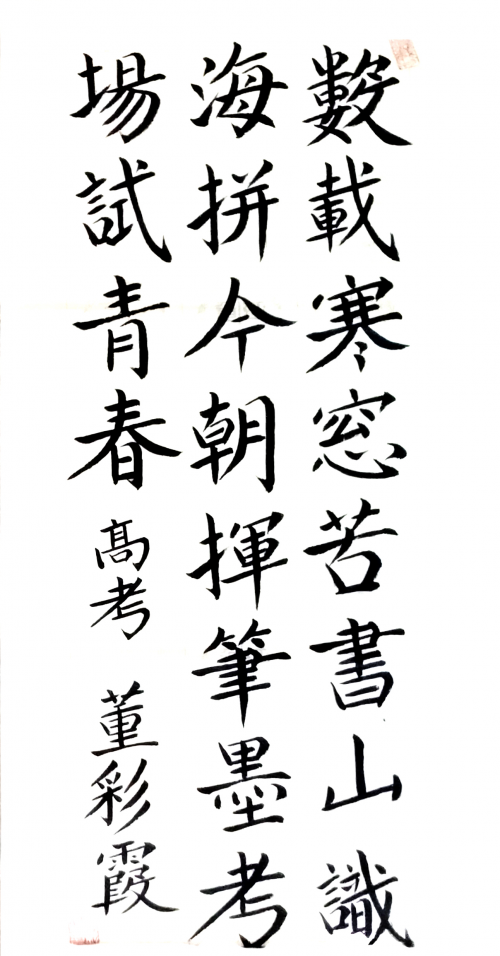 數載寒窓苦書山識
海拼今朝揮筆墨考
場試青春 髙考 董彩霞